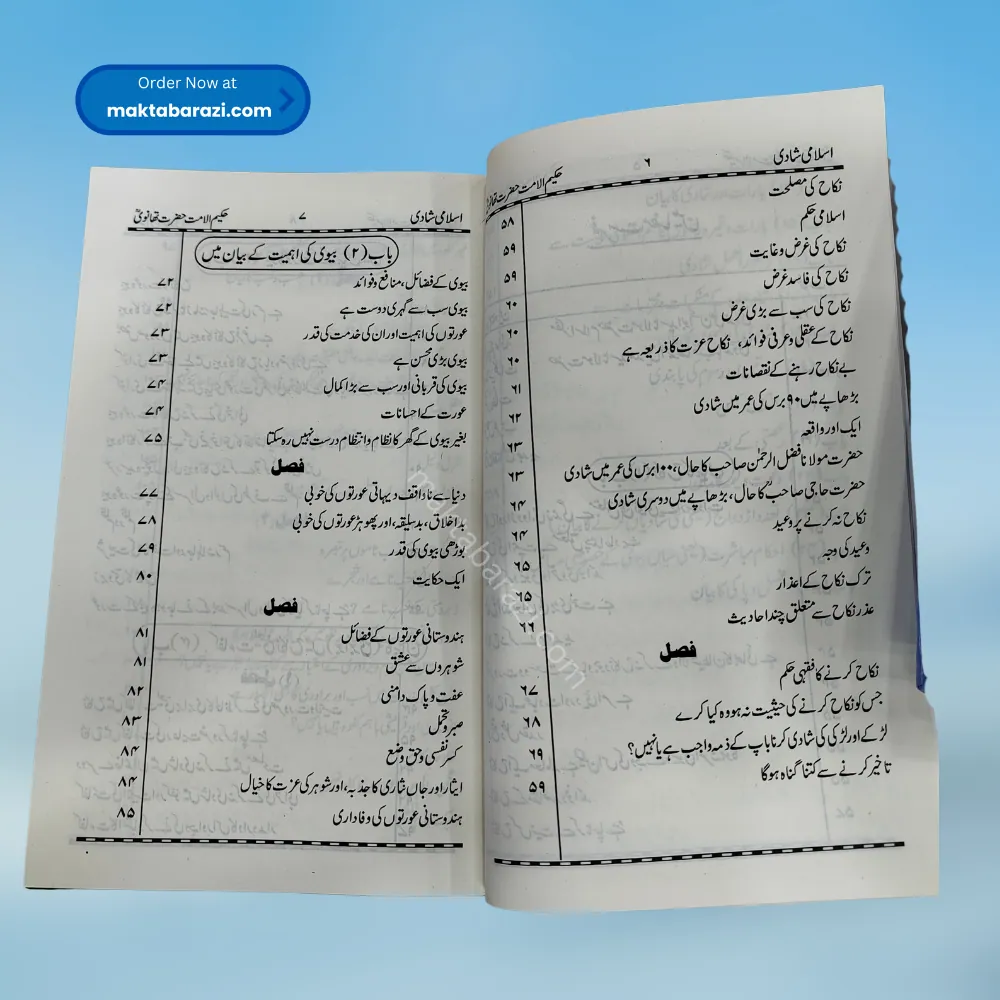 Order Now at
maktabarazi.com
اسلامی شادی ۶ حکیم الامت حضرت تھانویؒ
نکاح کی مصلحت
اسلامی حکم ۵۸
نکاح کی غرض وغایت ۵۹
نکاح کی فاسد غرض ۵۹
نکاح کی سب سے بڑی غرض ۶۰
نکاح کے عقلی وعرفی فوائد، نکاح عزت کا ذریعہ ہے ۶۰
بے نکاح رہنے کے نقصانات ۶۰
بڑھاپے میں ۹۰ برس کی عمر میں شادی ۶۱
ایک اور واقعہ ۶۲
حضرت مولانا فضل الرحمٰن صاحب کا حال، ۱۰۰ برس کی عمر میں شادی ۶۳
حضرت حاجی صاحبؒ کا حال، بڑھاپے میں دوسری شادی ۶۳
نکاح نہ کرنے پر وعید ۶۴
وعید کی وجہ ۶۴
ترک نکاح کے اعذار ۶۵
عذر نکاح سے متعلق چند احادیث ۶۵
۶۶
فصل
نکاح کرنے کا فقہی حکم
جس کو نکاح کرنے کی حیثیت نہ ہو وہ کیا کرے ۶۷
لڑکے اور لڑکی کی شادی کرنا باپ کے ذمہ واجب ہے یا نہیں؟ ۶۸
تاخیر کرنے سے کتنا گناہ ہوگا ۶۹
۵۹
اسلامی شادی ۷ حکیم الامت حضرت تھانویؒ
باب (۲) بیوی کی اہمیت کے بیان میں
بیوی کے فضائل، منافع و فوائد ۷۲
بیوی سب سے گہری دوست ہے ۷۲
عورتوں کی اہمیت اور ان کی خدمت کی قدر ۷۳
بیوی بڑی محسن ہے ۷۳
بیوی کی قربانی اور سب سے بڑا کمال ۷۴
عورت کے احسانات ۷۴
بغیر بیوی کے گھر کا نظام و انتظام درست نہیں رہ سکتا ۷۵
فصل
دنیا سے ناواقف دیہاتی عورتوں کی خوبی ۷۷
بد اخلاق، بد سلیقہ، اور پھوہڑ عورتوں کی خوبی ۷۸
بوڑھی بیوی کی قدر ۷۹
ایک حکایت ۸۰
فصل
ہندوستانی عورتوں کے فضائل ۸۱
شوہروں سے عشق ۸۱
عفت و پاک دامنی ۸۲
صبر و تحمل ۸۳
کسر نفسی وحق وضع ۸۴
ایثار اور جاں نثاری کا جذبہ، اور شوہر کی عزت کا خیال ۸۴
ہندوستانی عورتوں کی وفاداری ۸۵
maktabarazi.com